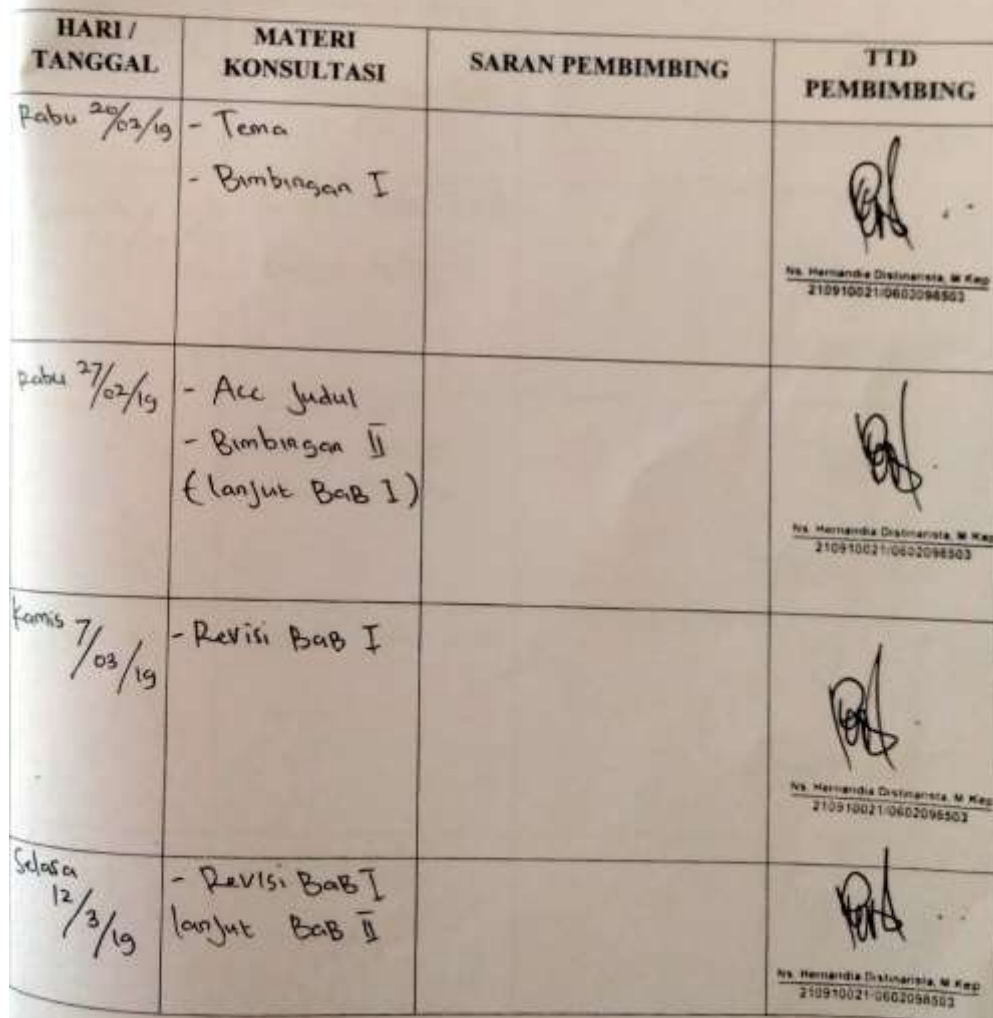 HARI / TANGGAL MATERI KONSULTASI SARAN PEMBIMBING TTD PEMBIMBING
Rabu 20/02/19
- Tema
- Bimbingan I
Ns. Hernandia Distinarista, M.Kep
210910021/0602098503
Rabu 27/02/19
- Acc Judul
- Bimbingan II
(lanjut BaB I)
Ns. Hernandia Distinarista, M.Kep
210910021/0602098503
Kamis 7/03/19
- Revisi BaB I
Ns. Hernandia Distinarista, M.Kep
210910021/0602098503
Selasa
12/3/19
- Revisi BaB I
lanjut BaB II
Ns. Hernandia Distinarista, M.Kep
210910021/0602098503